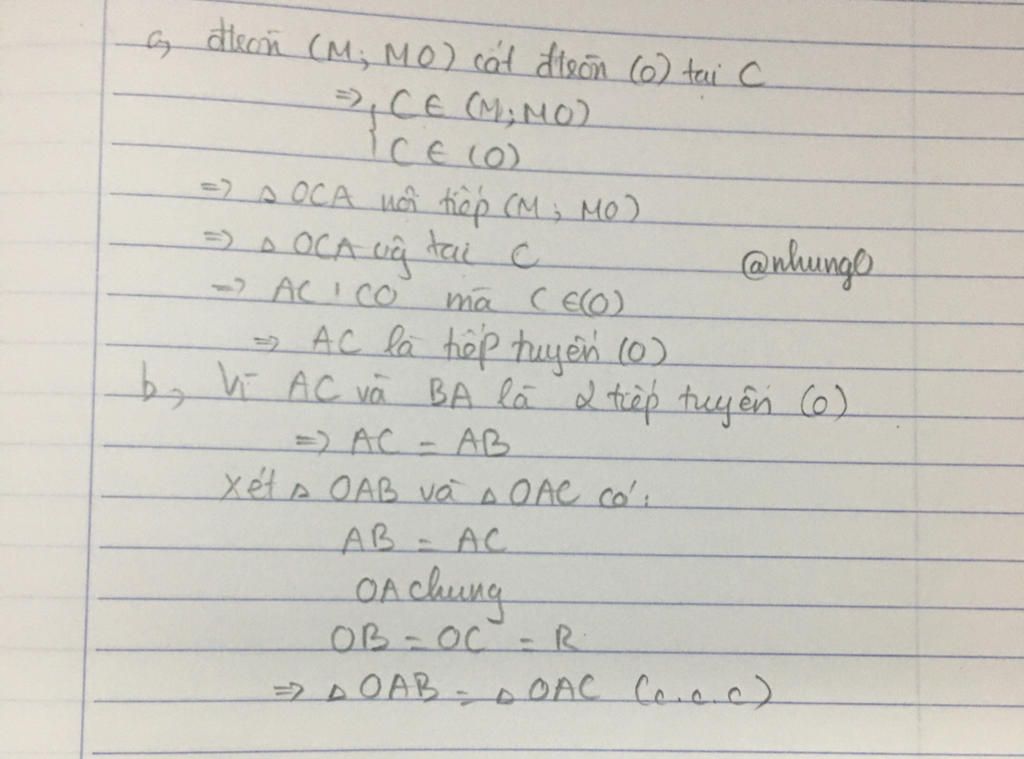 a, đtròn (M; MO) cắt đtròn (O) tại C
=> { C ∈ (M; MO)
C ∈ (O)
=> △ OCA nội tiếp (M; MO)
=> △ OCA vg tại C
@nhungO
=> AC ⊥ CO mà C ∈ (O)
=> AC là tiếp tuyến (O)
b, Vì AC và BA là 2 tiếp tuyến (O)
=> AC = AB
Xét △ OAB và △ OAC có:
AB = AC
OA chung
OB = OC = R
=> △ OAB = △ OAC (c.c.c)